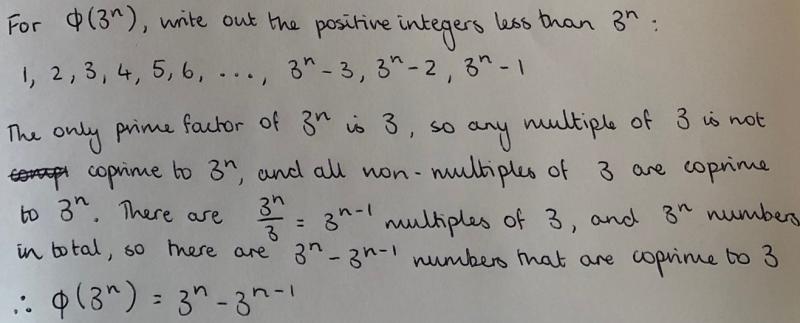 For ϕ(3ⁿ), write out the positive integers less than 3ⁿ :
1, 2, 3, 4, 5, 6, ..., 3ⁿ-3, 3ⁿ-2, 3ⁿ-1
The only prime factor of 3ⁿ is 3, so any multiple of 3 is not
coprime to 3ⁿ, and all non-multiples of 3 are coprime
to 3ⁿ. There are 3ⁿ/3 = 3ⁿ⁻¹ multiples of 3, and 3ⁿ numbers
in total, so there are 3ⁿ - 3ⁿ⁻¹ numbers that are coprime to 3
∴ ϕ(3ⁿ) = 3ⁿ - 3ⁿ⁻¹